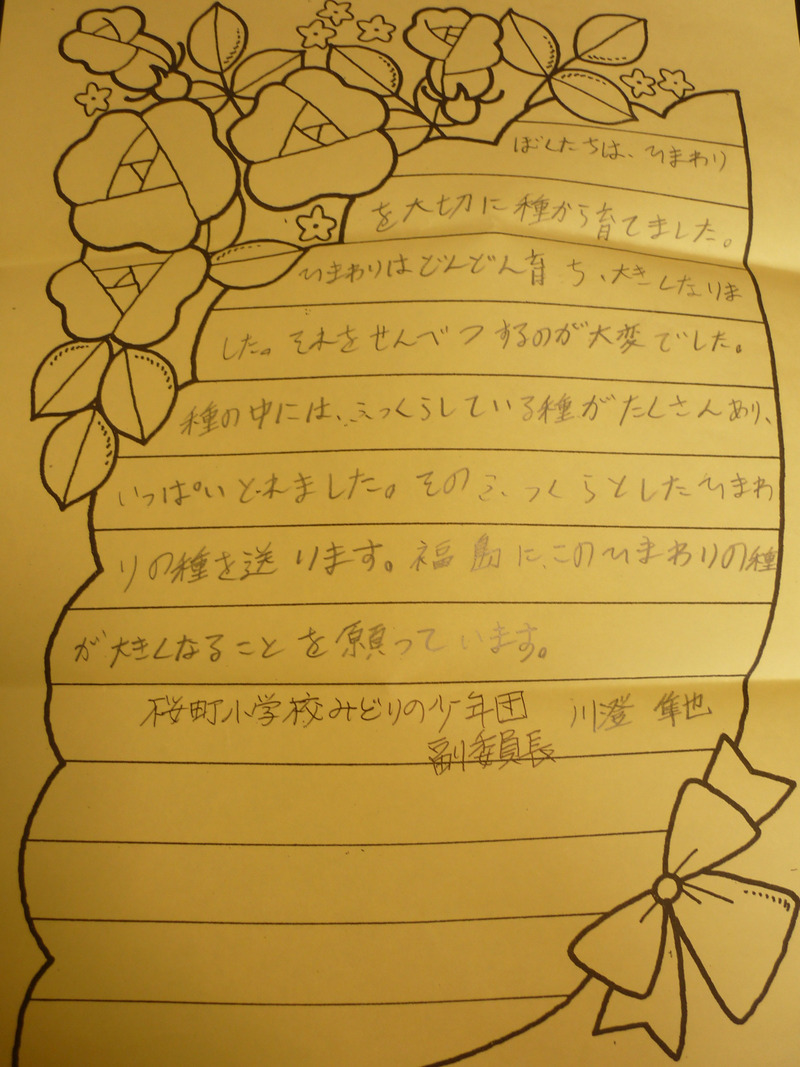 ぼくたちは、ひまわり
を大切に種から育てました。
ひまわりはどんどん育ち、大きしなりま
した。それをせんべつするのが大変でした。
種の中には、ふっくらしている種がたくさんあり、
いっぱいとれました。そのふっくらとしたひまわ
りの種を送ります。福島に、このひまわりの種
が大きくなることを願っています。
桜町小学校みどりの少年団 川澄 隼也
副委員長